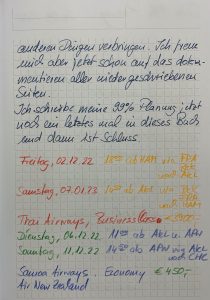 anderen Dingen verbringen. Ich freue
mich aber jetzt schon auf das doku-
mentieren aller niedergeschriebenen
Seiten.
Ich schreibe meine 99% Planung jetzt
noch ein letztes mal in dieses Buch
und dann ist Schluss.
Freitag, 02.12.22 ab HAM via
und AKL
Samstag, 07.01.23 ab AKL via
und HAM
Thai Airways, Business Class
Dienstag, 06.12.22 ab AKL in APW
Sonntag, 11.12.22 ab APW via AKL
und CHC
Samoa Airways. Economy € 450,-
Air New Zealand